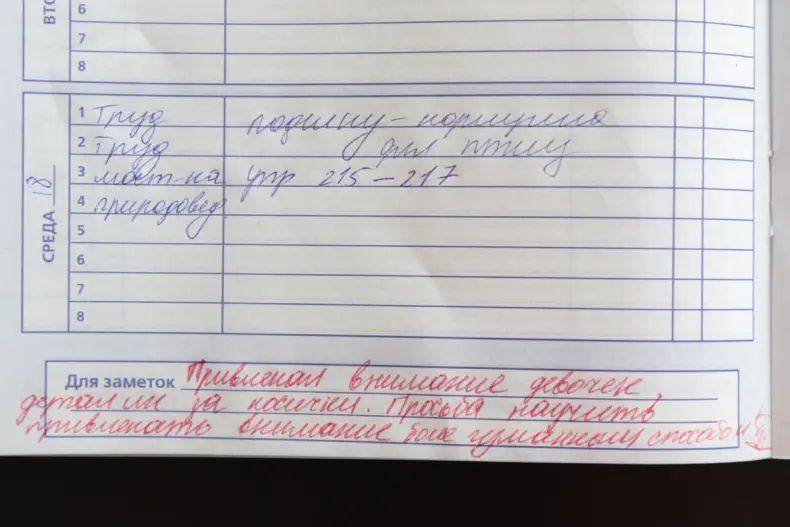 ВТО
6
7
8
СРЕДА 18
1 Труд
2 Труд для птиц
3 мат-ка упр 215-217
4 природовед.
5
6
7
8
Для заметок Привлекал внимание девочек,
дергал их за косички. Просьба научить
привлекать внимание более гуманным способом